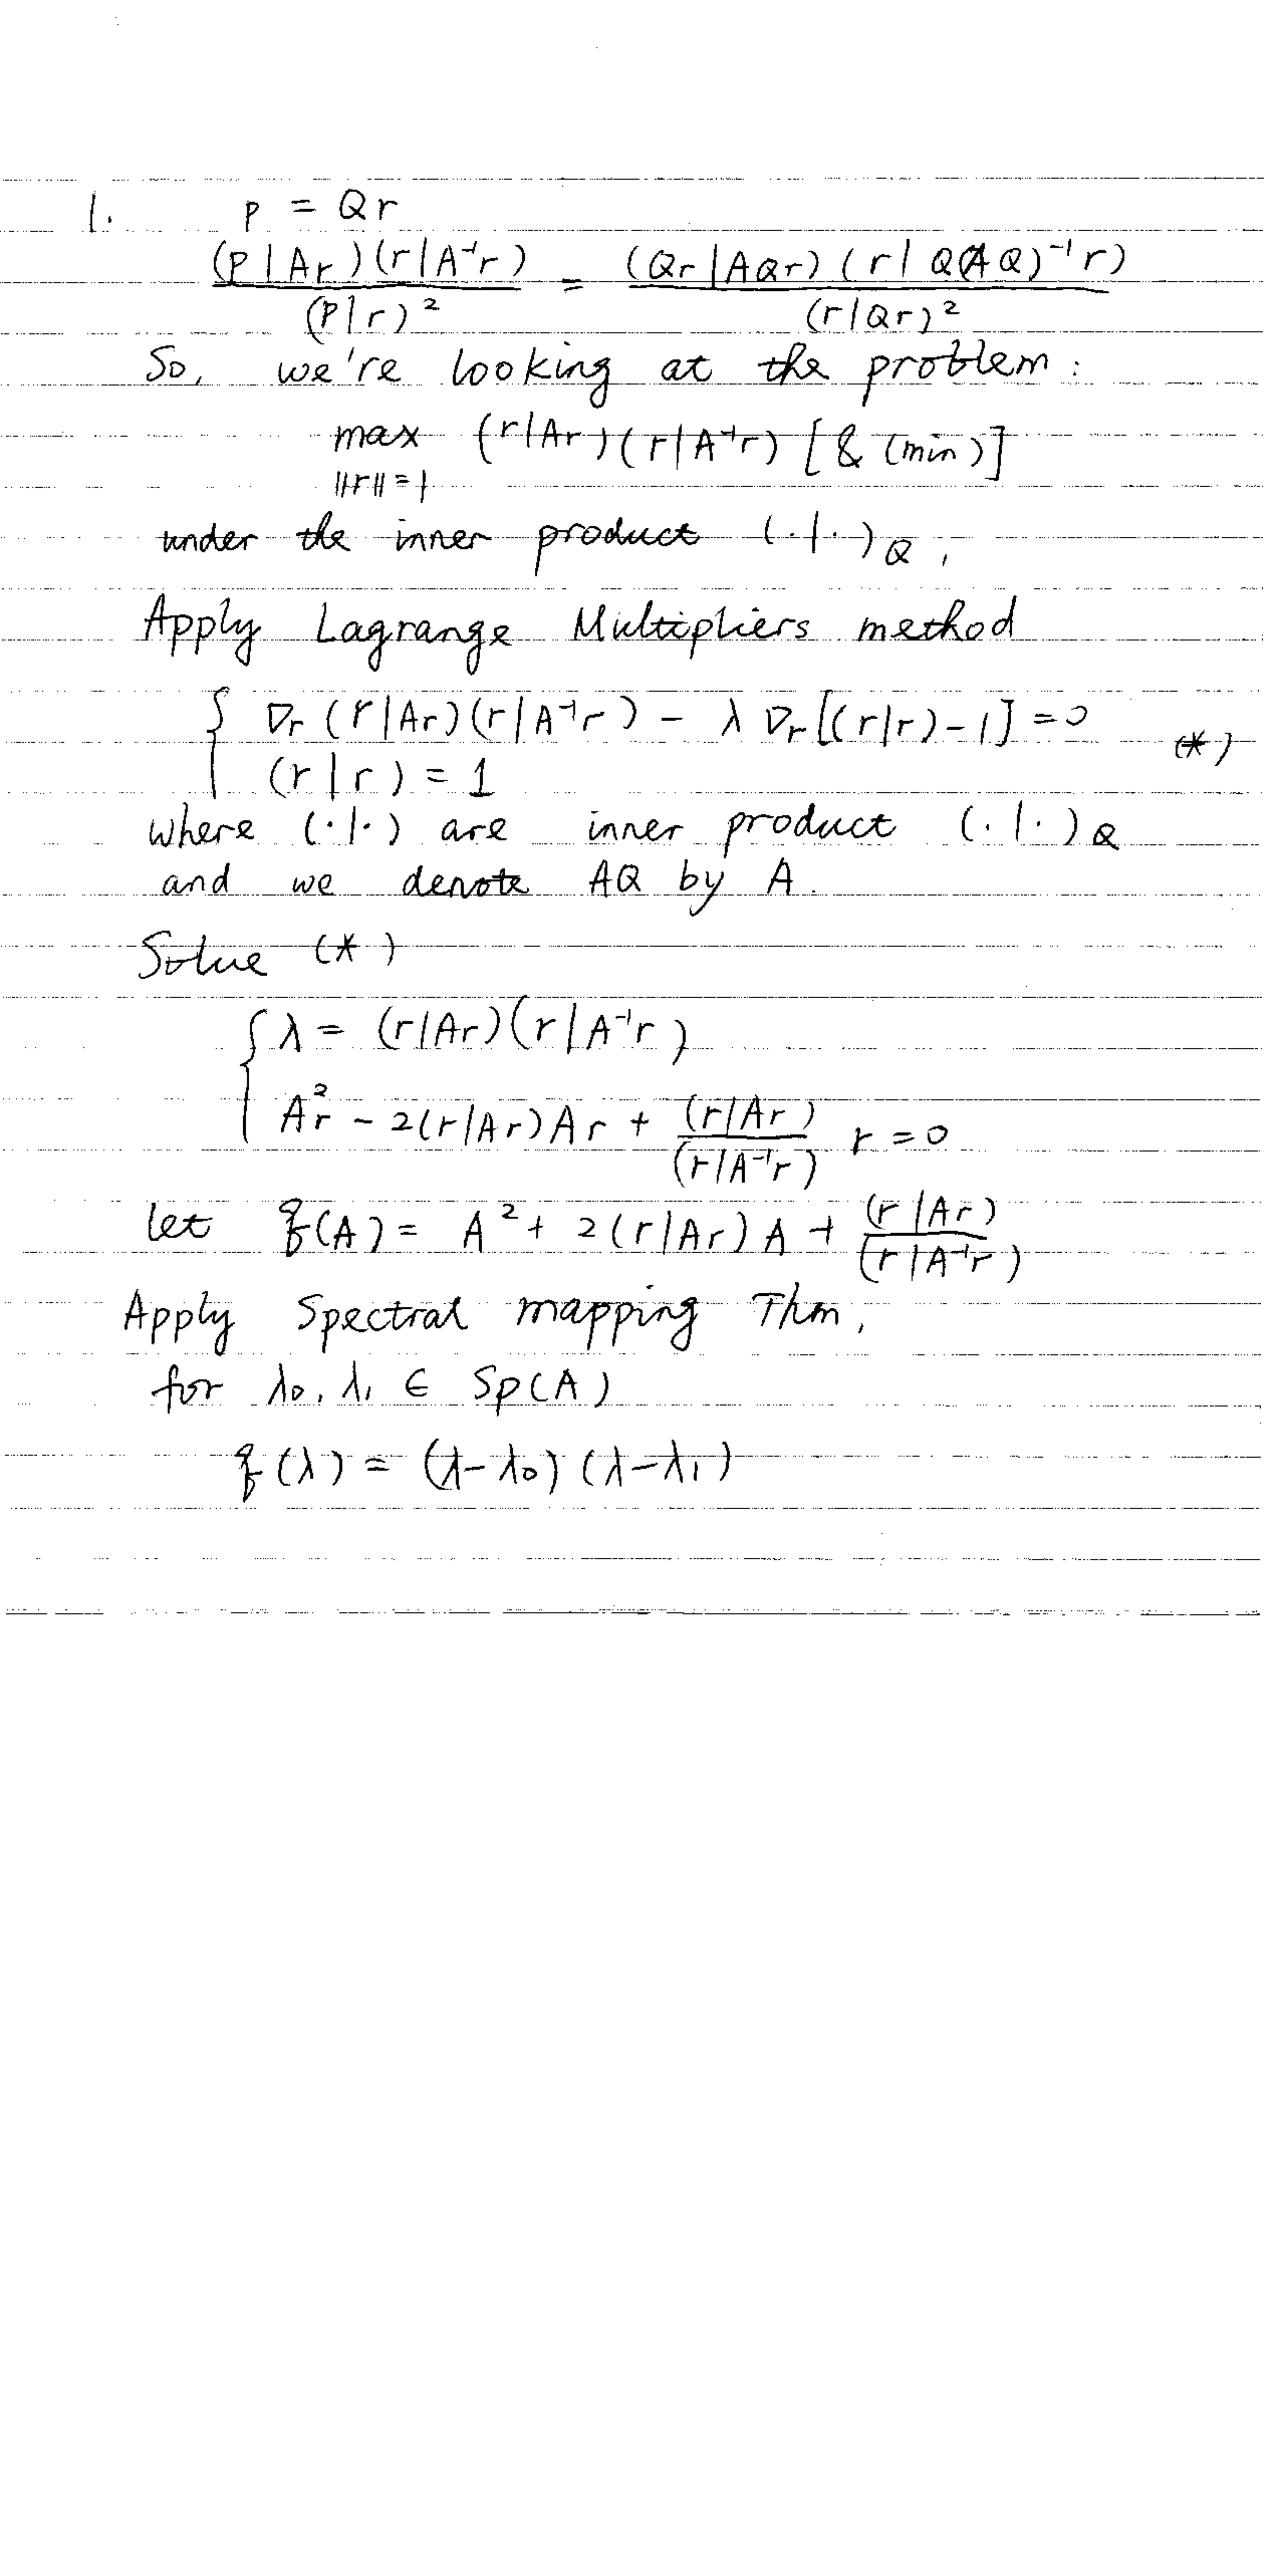 1. p = Qr
(p|Ar)(r|A⁻¹r) / (p|r)² = (Qr|AQr)(r|Q(AQ)⁻¹r) / (r|Qr)²
So, we're looking at the problem:
max (r|Ar)(r|A⁻¹r) [& (min)]
||r||=1
under the inner product (·|·)_Q,
Apply Lagrange Multipliers method
{ ∇r (r|Ar)(r|A⁻¹r) - λ ∇r[(r|r)-1] = 0 (*)
(r|r) = 1
where (·|·) are inner product (·|·)_Q
and we denote AQ by A.
Solve (*)
{ λ = (r|Ar)(r|A⁻¹r)
A²r - 2(r|Ar)Ar + (r|Ar)/(r|A⁻¹r) r = 0
let q(A) = A² + 2(r|Ar)A + (r|Ar)/(r|A⁻¹r)
Apply Spectral mapping Thm,
for λ₀, λ₁ ∈ Sp(A)
q(λ) = (λ-λ₀)(λ-λ₁)